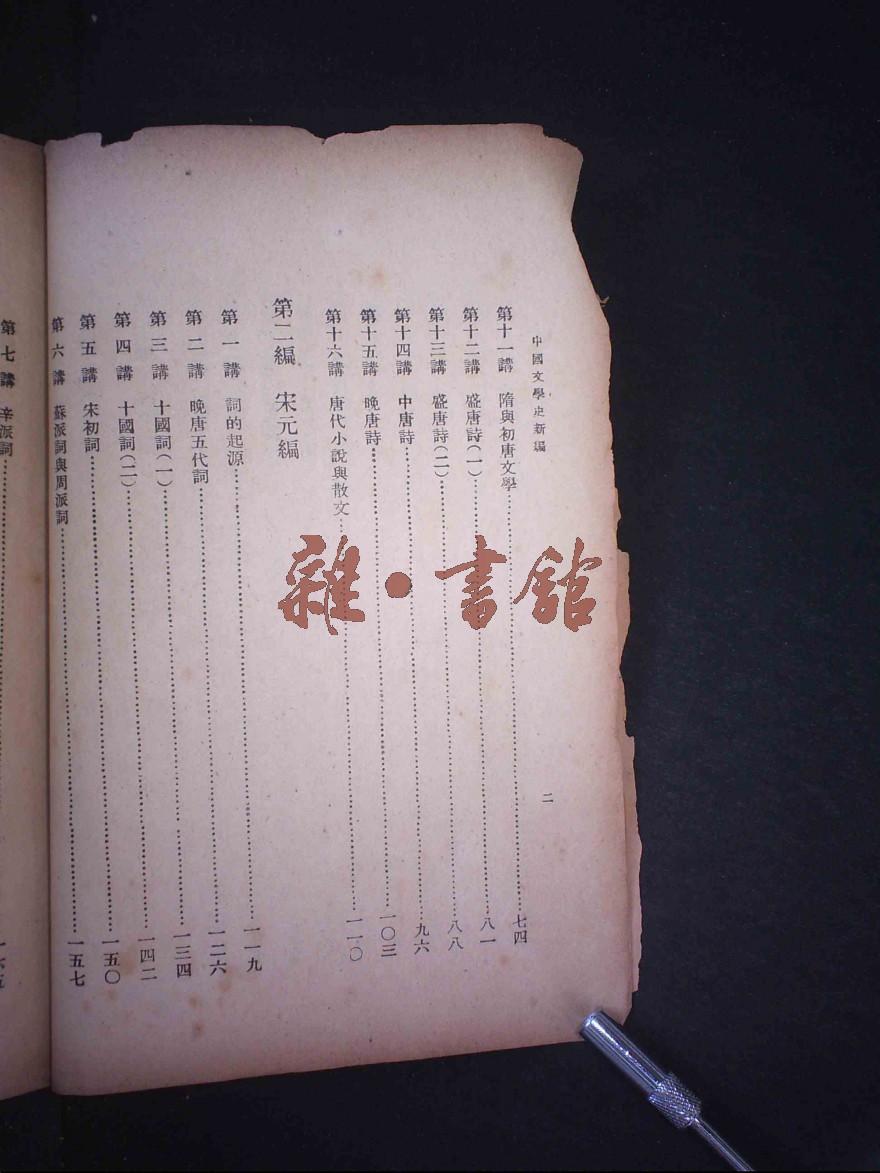 中國文學史新編
二
第十一講 隋與初唐文學……七四
第十二講 盛唐詩(一)……八一
第十三講 盛唐詩(二)……八八
第十四講 中唐詩……九六
第十五講 晚唐詩……一〇三
第十六講 唐代小說與散文……一一〇
第二編 宋元編
第一講 詞的起源……一一九
第二講 晚唐五代詞……一二六
第三講 十國詞(一)……一三四
第四講 十國詞(二)……一四二
第五講 宋初詞……一五〇
第六講 蘇派詞與周派詞……一五七
第七講 辛派詞……一六五
雜·書館